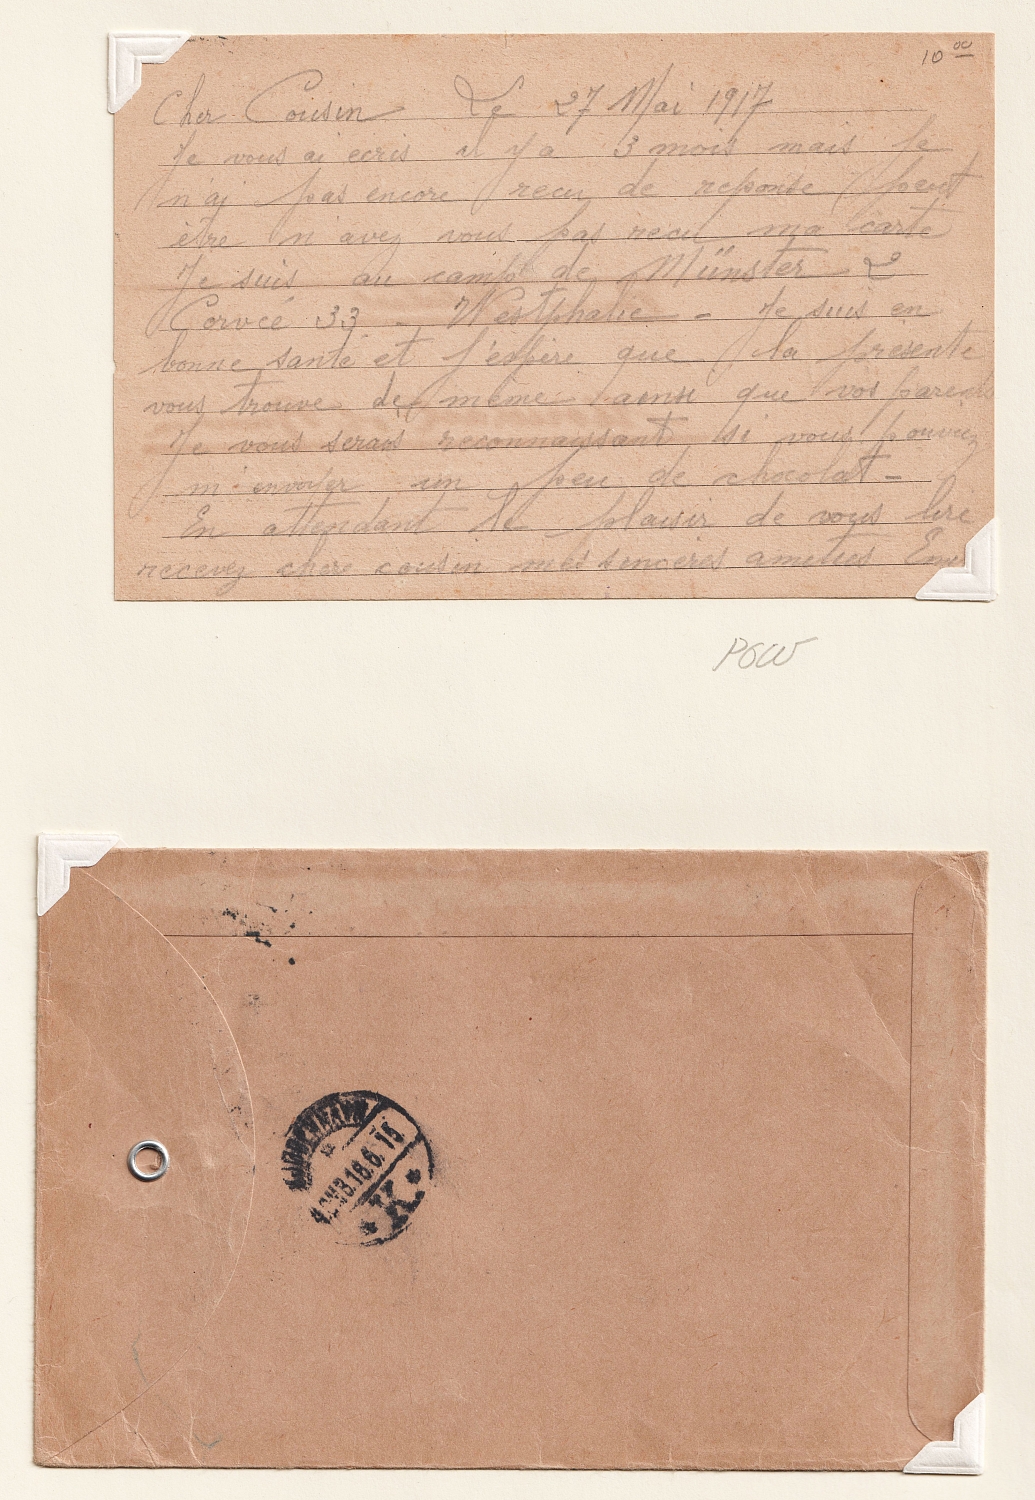 10 00
Cher Cousin Le 27 Mai 1917
Je vous ai ecris il y a 3 mois mais je
n'ai pas encore recu de reponse peut
etre n'avez vous pas recu ma carte
Je suis au camp de Münster 2
Corvée 33 - Westphalie - Je suis en
bonne santé et j'espère que la presente
vous trouve de même ainsi que vos parents
Je vous serais reconnaissant si vous pouviez
m'envoyer un peu de chocolat -
En attendant le plaisir de vous lire
recevez chere cousin mes sinceres amities
POW
KJØBENHAVN
OMB. 18.6. 18
* K. *